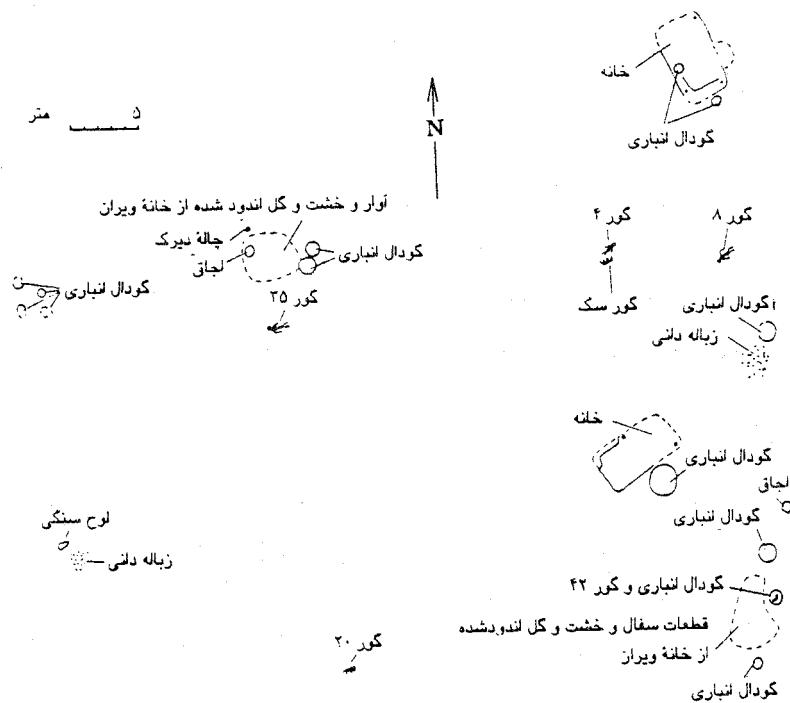 خانه
گودال انباری
۵ متر
N
آوار و خشت و گل اندود شده از خانهٔ ویران
چالهٔ دیرک
اجاق
گودال انباری
گودال انباری
گور ۳۵
گور ۴
گور ۸
گور سگ
گودال انباری
زباله دانی
خانه
گودال انباری
اجاق
گودال انباری
لوح سنگی
زباله دانی
گودال انباری و گور ۴۲
قطعات سفال و خشت و گل اندودشده
از خانهٔ ویران
گور ۲۰
گودال انباری